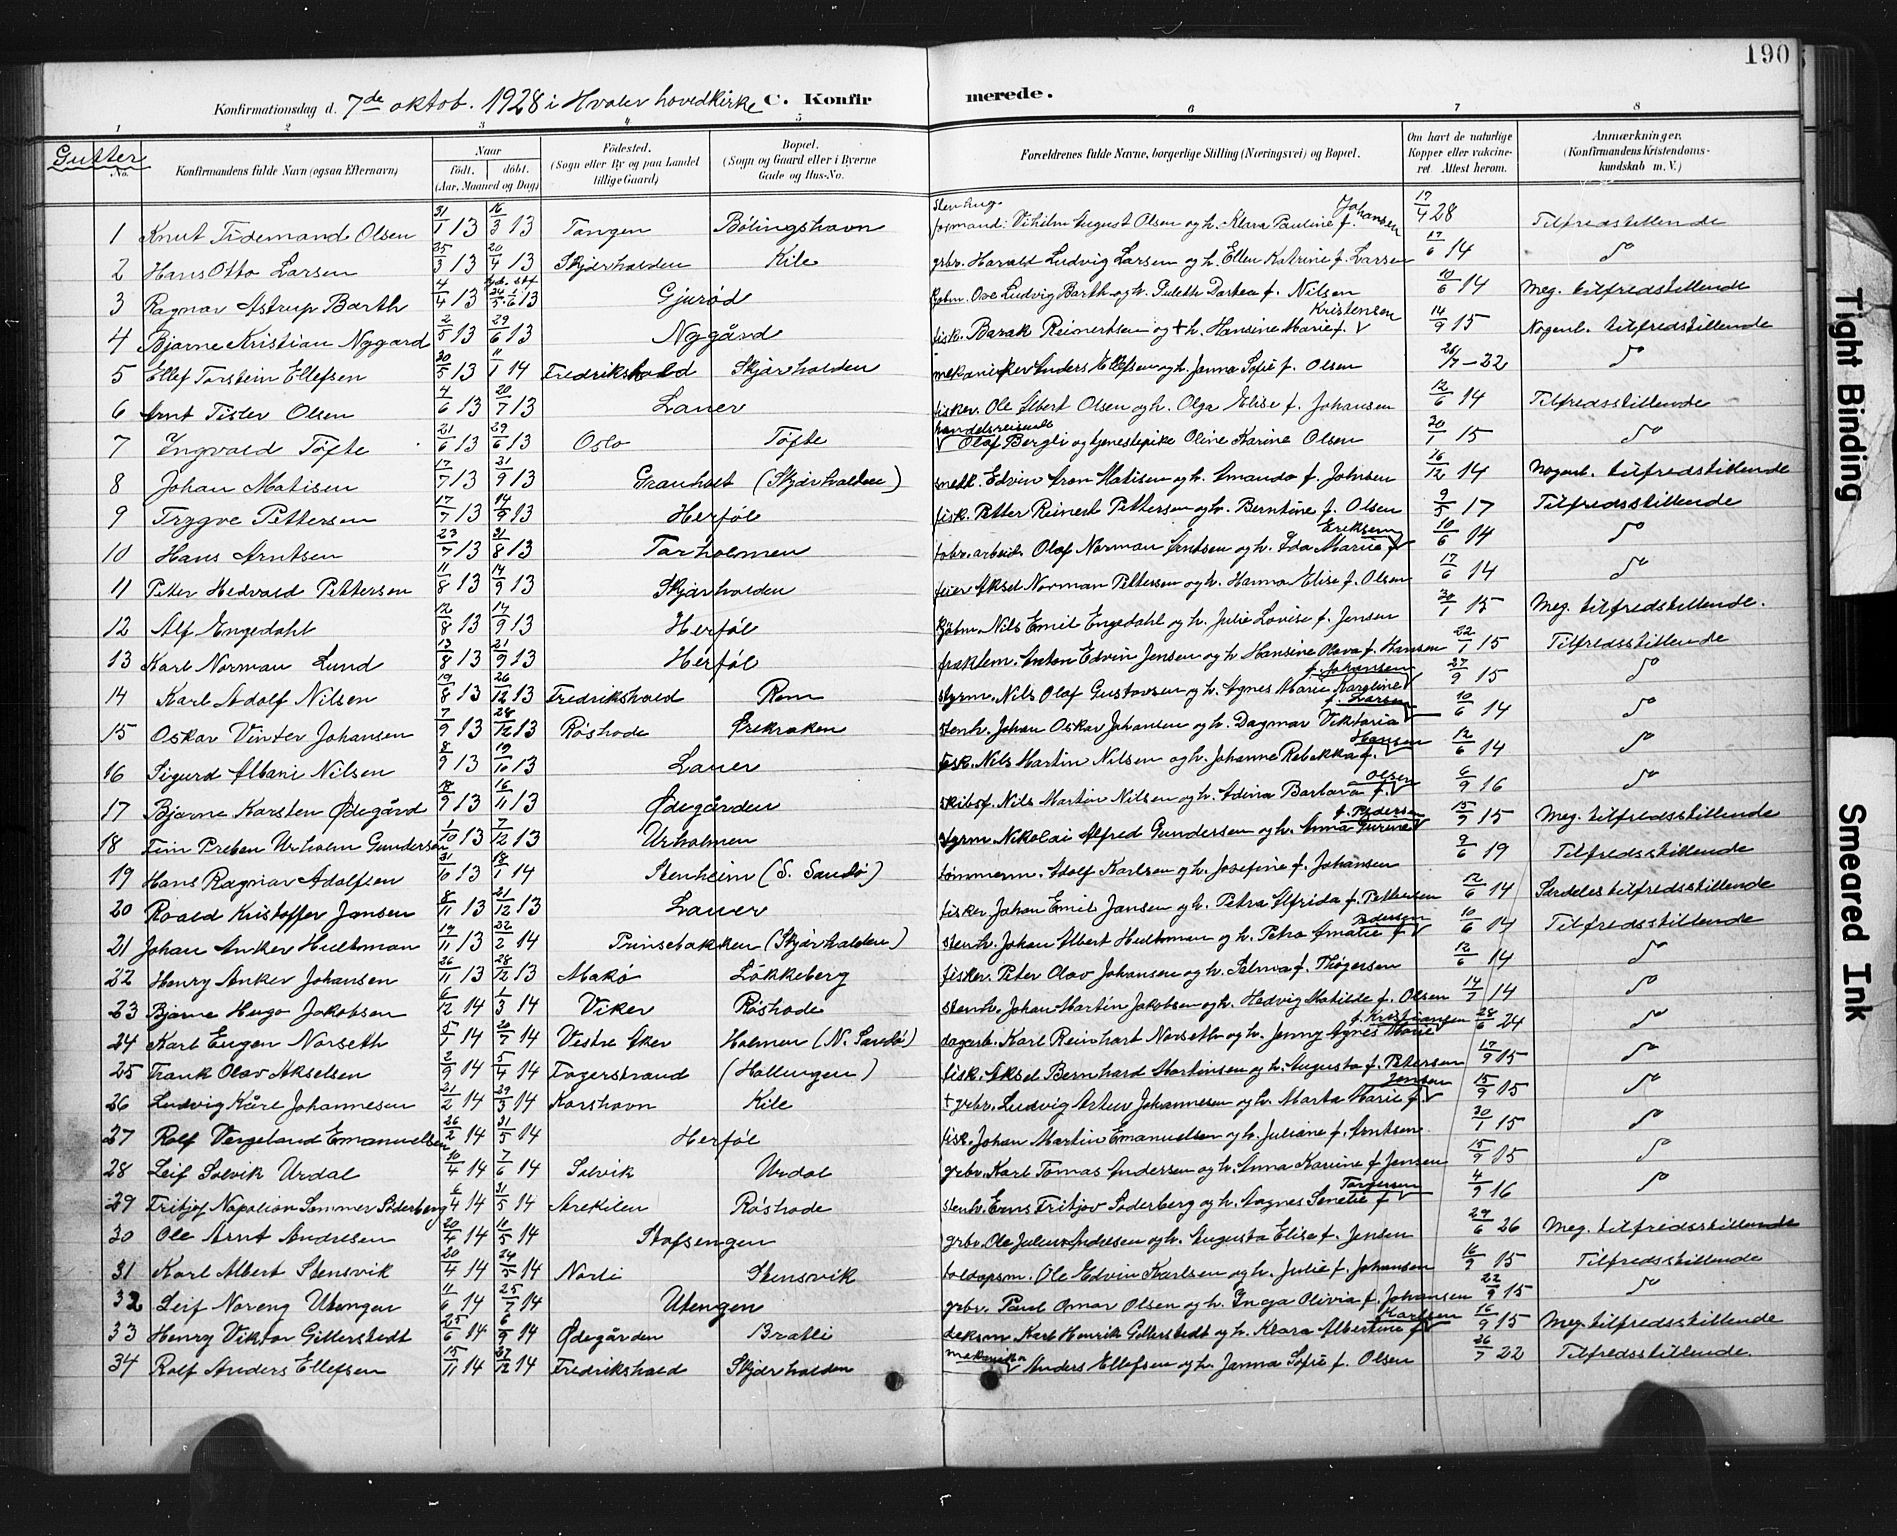 190
Konfirmationsdag d. 7de oktob. 1928 i Hvaler hovedkirke C. Konfirmerede.
1 2 3 4 5 6 7 8
Gutter
No. Konfirmandens fulde Navn (ogsaa Efternavn) Naar født. døbt. (Aar, Maaned og Dag) Fødested. (Sogn eller By og paa Landet tillige Gaard) Bopæl. (Sogn og Gaard eller i Byerne Gade og Hus-No. Forældrenes fulde Navne, borgerlige Stilling (Næringsvei) og Bopæl. Om havt de naturlige Kopper eller vaccineret Attest herom. Anmærkninger. (Konfirmandens Kristendomskundskab m. V.)
1 Knut Tidemand Olsen 31/1 13 16/3 13 Tangen Bölingshavn stenhug. formand: Vilhelm August Olsen og h. Klara Pauline f. Johansen 17/4 28 Tilfredstillende
2 Hans Otto Larsen 25/3 13 20/4 13 Skjærhalden Kile grbr. Harald Ludvig Larsen og h. Ellen Katrine f. Larsen 17/6 14 do
3 Ragnar Astrup Barth 4/4 13 24/5 1/6 13 Gjurød kjøbm. Ove Ludvig Barth og h. Julette Dortea f. Nilsen 10/6 14 Meg. tilfredstillende
4 Bjarne Kristian Nygaard 2/5 13 29/6 13 Nygård fisk. Barak Reinertsen og † h. Hansine Marie f. Kristensen 14/9 15 Nogenl. tilfredstillende
5 Ellef Torstein Ellefsen 30/5 13 11/1 14 Fredrikshald Skjærhalden mekaniker Anders Ellefsen og h. Janna Sofie f. Olsen 26/7-22 do
6 Arnt Tisler Olsen 4/6 13 20/7 13 Lauer fisker. Ole Albert Olsen og h. Olga Elise f. Johansen 12/6 14 Tilfredsstillende
7 Ingvald Töfte 21/6 13 29/6 13 Oslo Töfte handelsreisende Olaf Bergli og tjenestepike Oline Karine Olsen 20/1 15 do
8 Johan Matisen 17/7 13 21/9 13 Granholt (Skjærhalden) snekk. Edvin Aron Matisen og h. Amanda f. Johnsen 16/12 14 Nogenl. tilfredstillende
9 Trygve Pettersen 17/7 13 14/9 13 Herföl fisk. Petter Reinert Pettersen og h. Berntine f. Olsen 9/5 17 Tilfredsstillende
10 Hans Arntsen 23/7 13 31/8 13 Torholmen fabr. arbeid. Olaf Norman Arntsen og h. Ida Marie f. Eriksen 10/6 14 do
11 Peter Hedvald Pettersen 11/8 13 14/9 13 Skjærhalden feier Aksel Norman Pettersen og h. Hanna Elise f. Olsen 17/6 14 do
12 Alf Engedahl 12/8 13 14/9 13 Herföl kjøbm. Nils Emil Engedahl og h. Julie Lovise f. Jensen 30/1 15 Meg. tilfredstillende.
13 Karl Norman Lund 13/8 13 21/9 13 Herföl Anton Edvin Jensen og h. Hansine Olava f. Hansen 22/1 15 Tilfredsstillende
14 Karl Adolf Nilsen 19/8 13 26/12 13 Fredrikshald Rom styrm. Nils Olaf Gustavsen og h. Agnes Marie Karoline f. Johansen 27/9 15 do
15 Oskar Vinter Johansen 7/9 13 28/12 13 Røshode Ørekroken stenh. Johan Oskar Johansen og h. Dagmar Viktoria f. Larsen 10/6 14 do
16 Sigurd Albani Nilsen 8/9 13 19/10 13 Lauer fisk. Nils Martin Nilsen og h. Johanne Rebekka f. Hansen 12/6 14 do
17 Bjarne Karsten Ödegård 18/9 13 16/11 13 Ödegården skibsf. Nils Martin Nilsen og h. Adina Barbara f. Olsen 6/9 16 do
18 Finn Preben Urholm Gundersen 1/10 13 7/12 13 Urholmen styrm Nikolai Alfred Gundersen og h. Anna Gurine f. Pedersen 15/9 15 Meg. tilfredsstillende
19 Hans Ragnar Adolfsen 31/10 13 18/1 14 Stenheim (S. Sandö) tømmerm. Adolf Karlsen og h. Josefine f. Johansen 9/6 19 Tilfredsstillende
20 Roald Kristoffer Jansen 8/11 13 21/12 13 Lauer fisker Johan Emil Jansen og h. Petra Alfrida f. Pettersen 12/6 14 Særdeles tilfredsstillende
21 Johan Anker Hultman 19/11 13 22/2 14 Prinsebakken (Skjærhalden) stenh. Johan Albert Hultman og h. Petra Amalie f. Pedersen 10/6 14 Tilfredsstillende
22 Henry Anker Johansen 26/11 13 28/12 13 Makö Lökkeberg fisker. Peter Olav Johansen og h. Selma f. Thögersen 12/6 14 do
23 Bjarne Hugo Jakobsen 6/12 14 1/3 14 Viker Røshode stenh. Johan Martin Jakobsen og h. Hedvig Matilde f. Olsen 14/7 14 do
24 Karl Eugen Norseth 5/1 14 20/7 14 Vestre Aker Holmen (N. Sandö) dagarb. Karl Reinhart Norseth og h. Jenny Agnes Marie f. Kristiansen 28/6 24 do
25 Frank Olav Akselsen 2/9 14 5/4 14 Fagerstrand (Hollungen) fisk. Aksel Bernhard Martinsen og h. Augusta f. Petersen 17/9 15 do
26 Ludvig Kåre Johannesen 21/2 14 29/3 14 Korshavn Kile † grbr. Ludvig Artur Johannesen og h. Marta Marie f. Jensen 15/9 15 do
27 Rolf Vergeland Emanuelsen 26/2 14 31/5 14 Herföl fisk. Johan Martin Emanuelsen og h. Juliane f. Arntsen. 30/1 15 do
28 Leif Solvik Urdal 10/4 14 7/6 14 Solvik Urdal grbr. Karl Tomas Andersen og h. Anna Karine f. Jensen 15/9 15 do
29 Fritjof Napoleon Sommer Söderberg 6/4 14 31/5 14 Arekilen Røshode stenh. Erns Fritjov Söderberg og h. Aagnes Senelie f. Torgersen 4/9 16 do
30 Ole Arnt Andresen 20/4 14 11/5 14 Stafsengen grbr. Ole Julius Andresen og h. Augusta Elise f. Jensen 29/6 26 Meg. tilfredsstillende
31 Karl Albert Stensvik 20/4 14 24/5 14 Norli Stensvik toldopsm. Ole Edvin Karlsen og h. Julie f. Johansen 16/9 15 Tilfredsstillende
32 Leif Noreng Utengen 11/6 14 25/7 14 Utengen grbr. Paul Omar Olsen og h. Inga Olivia f. Johansen 22/9 15 do
33 Henry Viktor Gillerstedt 25/6 14 6/9 14 Ödegården Bratli deksm. Karl Henrik Gillerstedt og h. Klara Albertine f. Karlsen 16/9 15 Meg. tilfredsstillende
34 Rolf Anders Ellefsen 15/11 14 27/12 14 Fredrikshald Skjærhalden mekanik. Anders Ellefsen og h. Janna Sofie f. Olsen 26/7 22 Tilfredsstillende.
Tight Binding
Smeared Ink